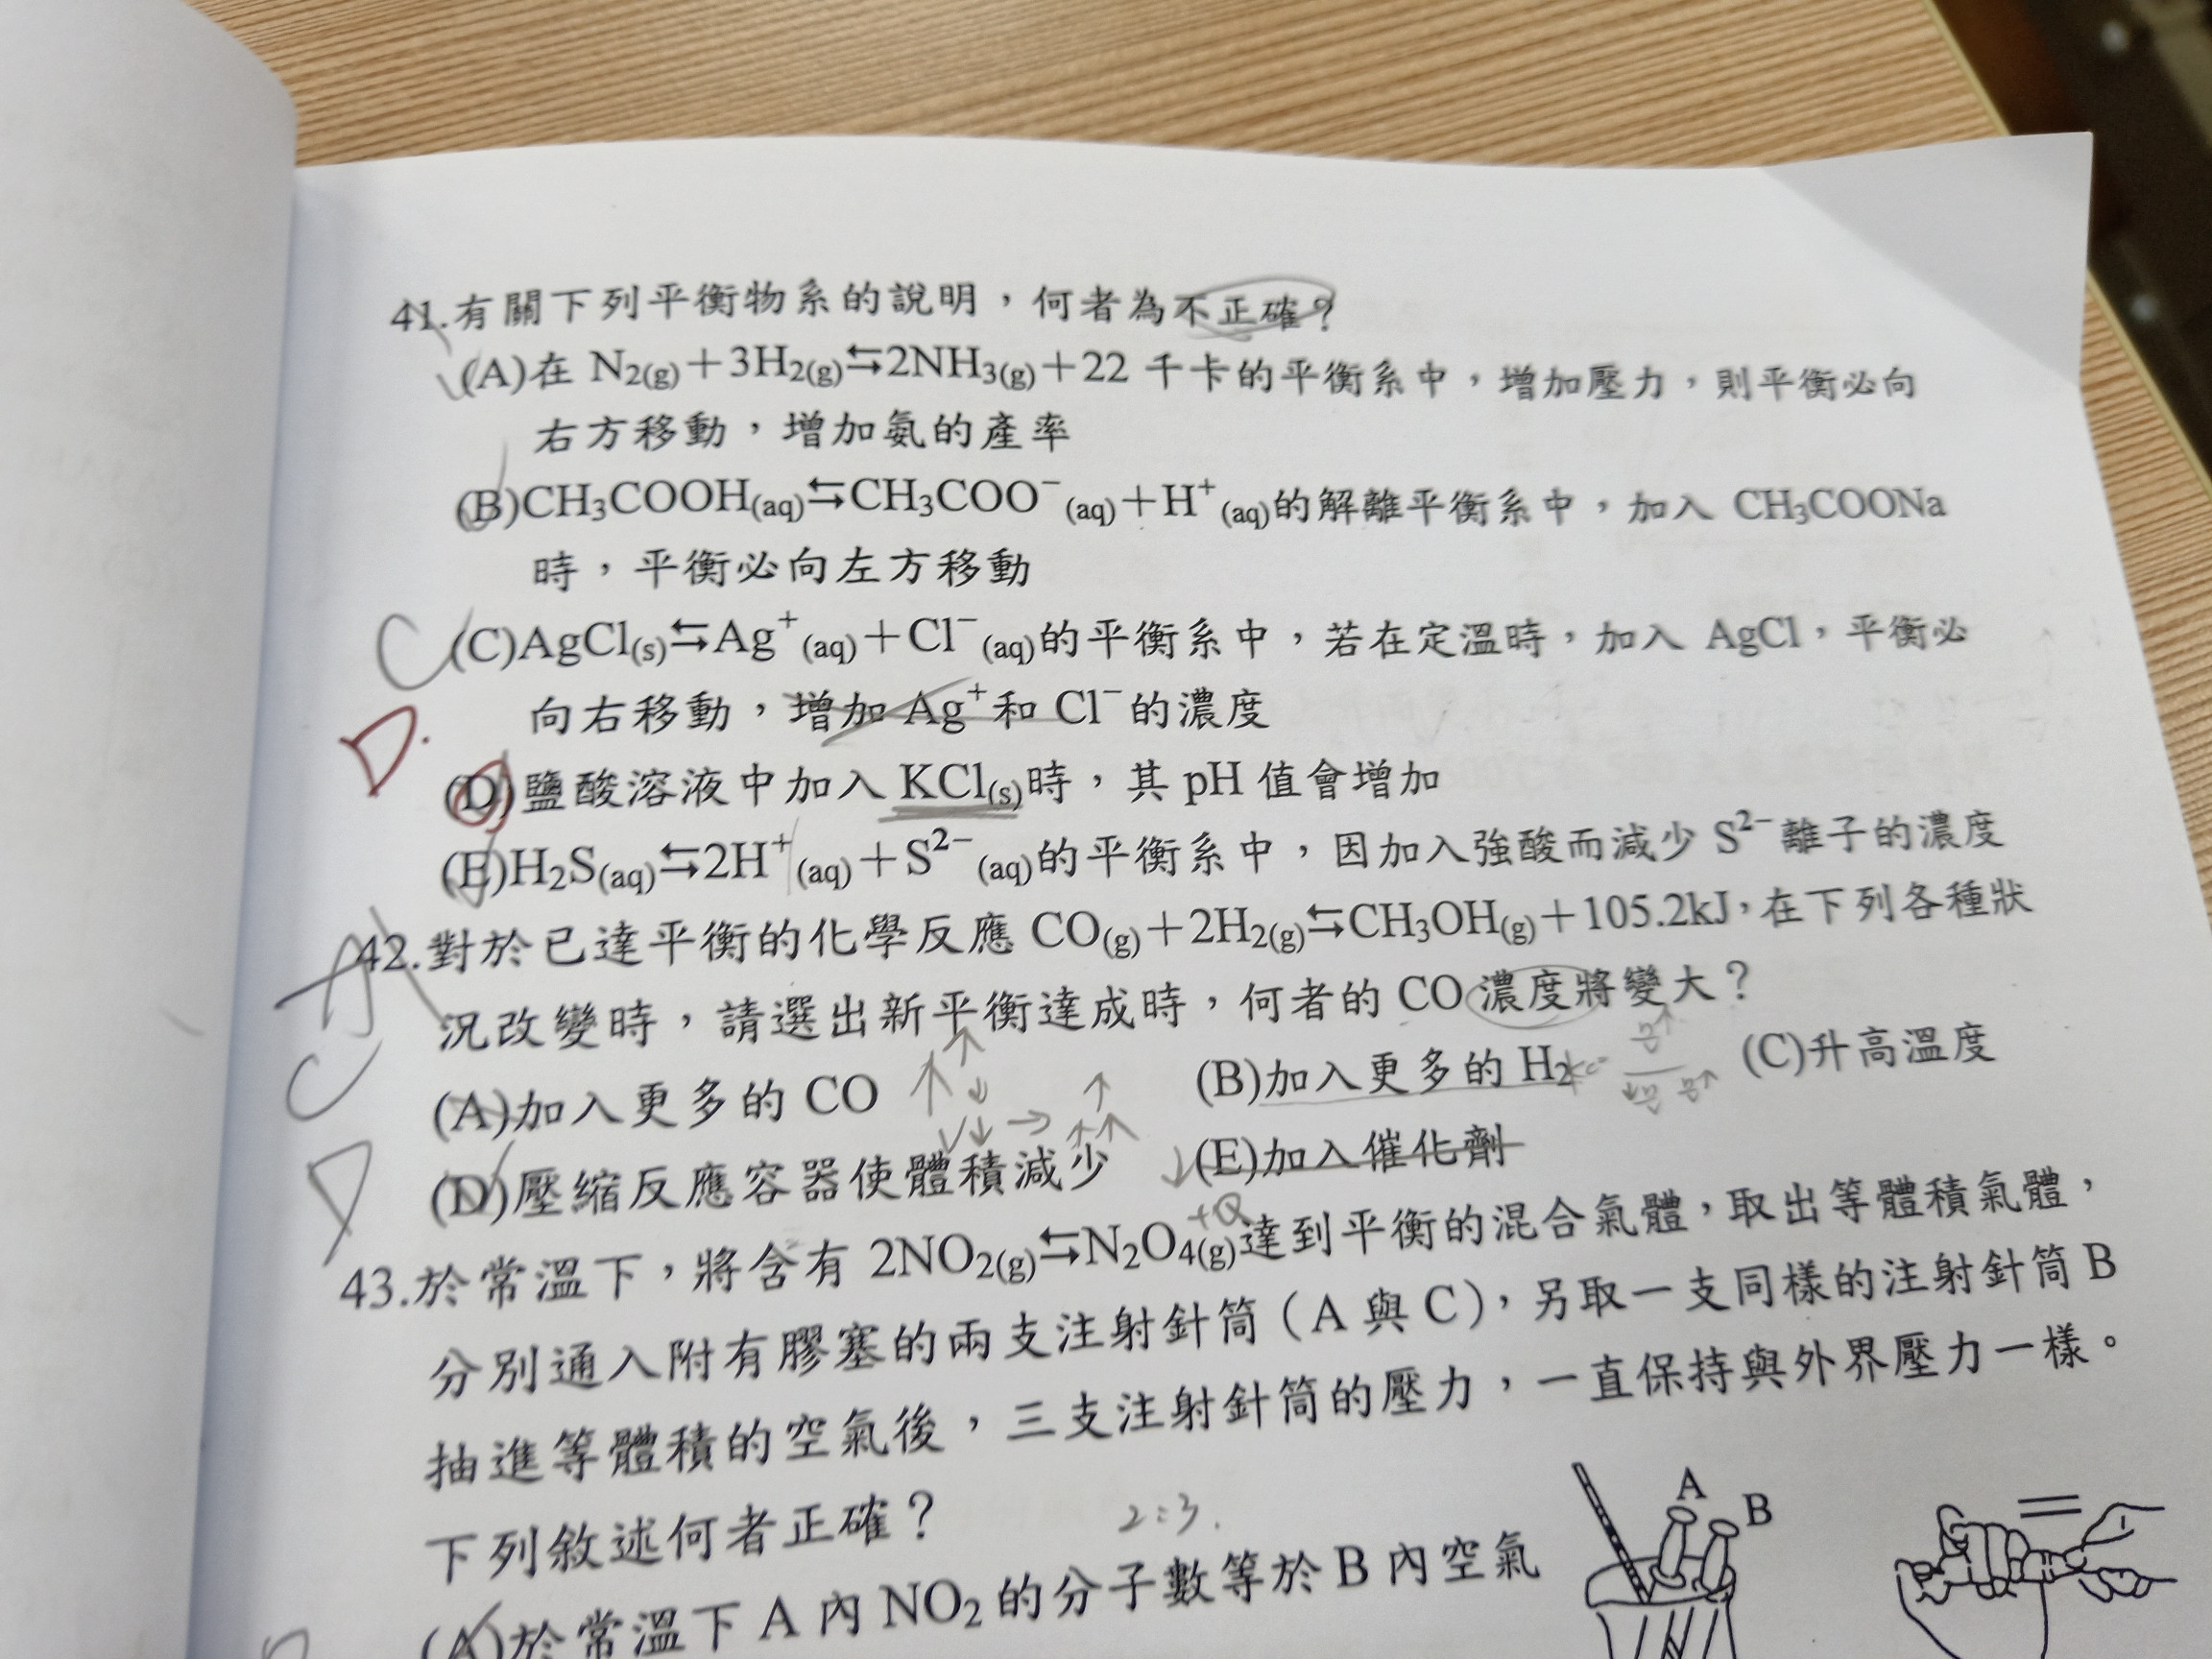 41.有關下列平衡物系的說明，何者為不正確？
(A)在 N2(g)＋3H2(g)⇆2NH3(g)＋22 千卡的平衡系中，增加壓力，則平衡必向
右方移動，增加氨的產率
(B)CH3COOH(aq)⇆CH3COO⁻(aq)＋H⁺(aq)的解離平衡系中，加入 CH3COONa
時，平衡必向左方移動
C (C)AgCl(s)⇆Ag⁺(aq)＋Cl⁻(aq)的平衡系中，若在定溫時，加入 AgCl，平衡必
向右移動，增加 Ag⁺和 Cl⁻的濃度
D.
(D)鹽酸溶液中加入 KCl(s)時，其 pH 值會增加
(E)H2S(aq)⇆2H⁺(aq)＋S²⁻(aq)的平衡系中，因加入強酸而減少 S²⁻離子的濃度
A 42.對於已達平衡的化學反應 CO(g)＋2H2(g)⇆CH3OH(g)＋105.2kJ，在下列各種狀
況改變時，請選出新平衡達成時，何者的 CO 濃度將變大？
C (A)加入更多的 CO (B)加入更多的 H2 (C)升高溫度
D (D)壓縮反應容器使體積減少 (E)加入催化劑
+Q
43.於常溫下，將含有 2NO2(g)⇆N2O4(g)達到平衡的混合氣體，取出等體積氣體，
分別通入附有膠塞的兩支注射針筒（A 與 C），另取一支同樣的注射針筒 B
抽進等體積的空氣後，三支注射針筒的壓力，一直保持與外界壓力一樣。
下列敘述何者正確？
2:3.
(A)於常溫下 A 內 NO2 的分子數等於 B 內空氣
A
B